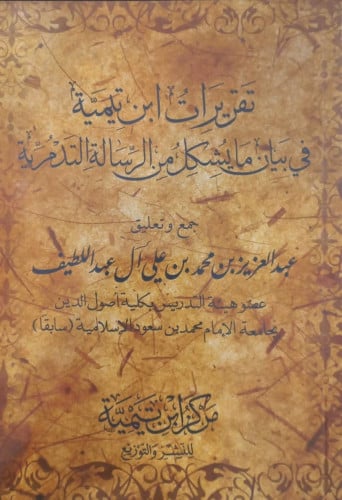 تقريرات ابن تيمية
في بيان ما يشكل من الرسالة التدمرية
جمع وتعليق
عبد العزيز بن محمد بن علي آل عبد اللطيف
عضو هيئة التدريس بكلية أصول الدين
بجامعة الإمام محمد بن سعود الإسلامية (سابقا)
مركز ابن تيمية
للنشر والتوزيع